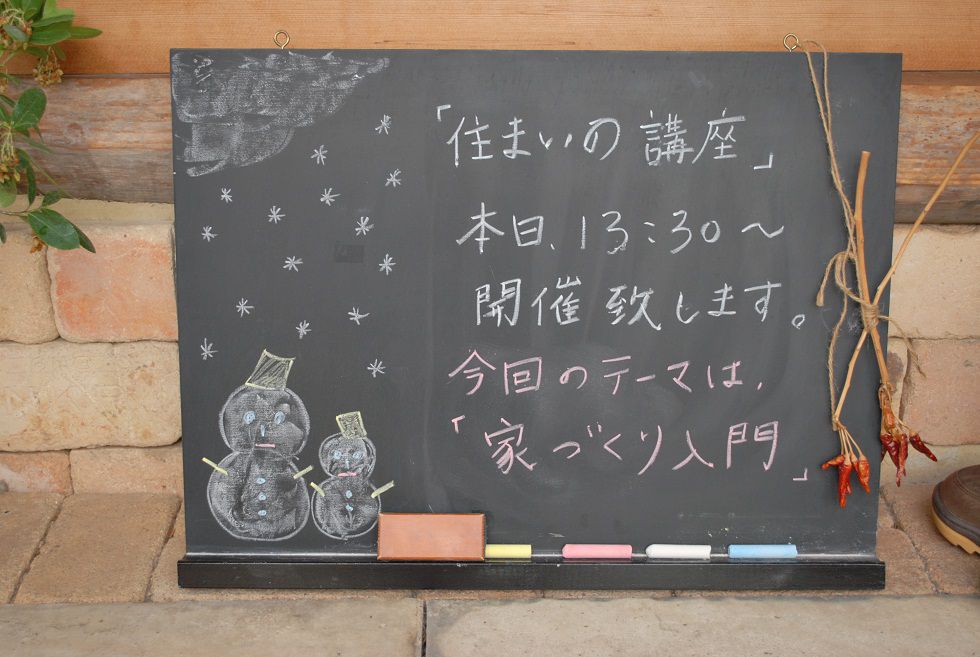 「住まいの講座」
本日、13:30～
開催致します。
今回のテーマは、
「家づくり入門」